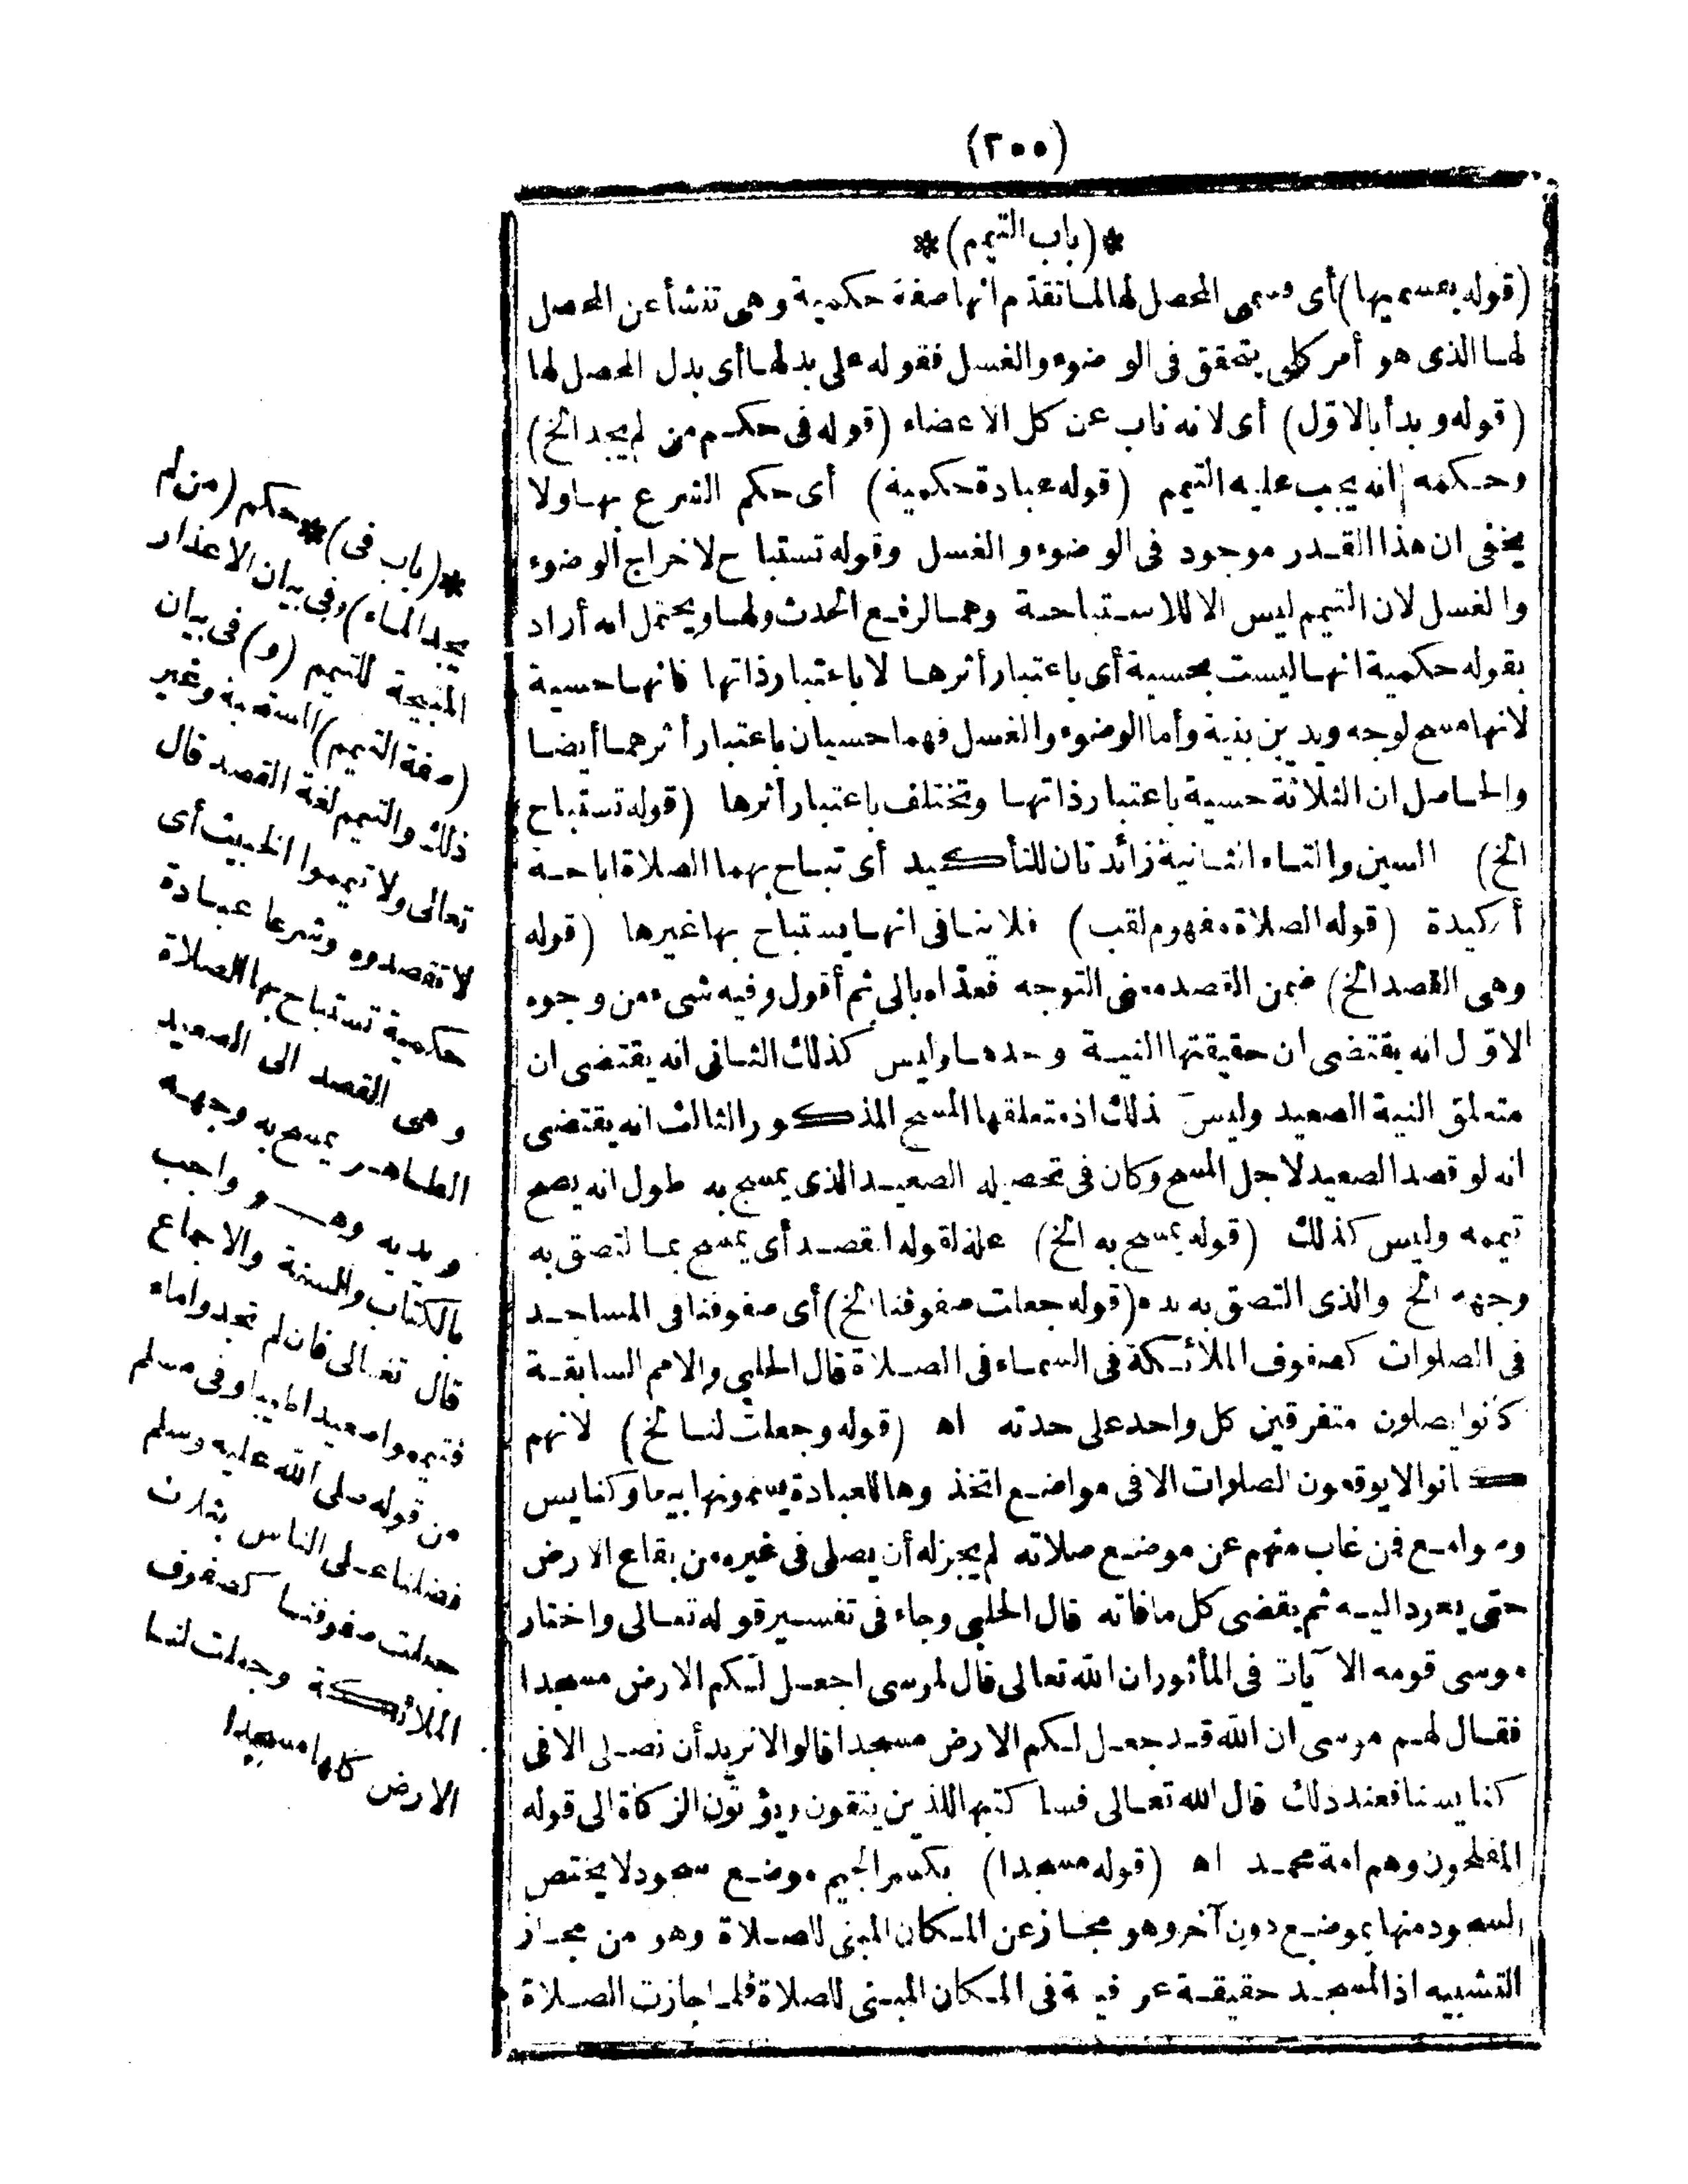 (٢٠٠)
*(باب التيمم)*
(قوله بقسميها) أى قسمى المحصل لها لما تقدم انها صفة حكمية وهى تنشأ عن المحصل
لها الذى هو أمر كلى يتحقق فى الوضوء والغسل فقوله على بدلها أى بدل المحصل لها
(قوله وبدأ بالاول) أى لانه ناب عن كل الاعضاء (قوله فى حكم من لم يجد الخ)
وحكمه انه يجب عليه التيمم (قوله عبادة حكمية) أى حكم الشرع بها ولا
يخفى ان هذا القدر موجود فى الوضوء والغسل وقوله تستباح لاخراج الوضوء
والغسل لان التيمم ليس الا للاستباحة وهما لرفع الحدث ولها ويحتمل انه أراد
بقوله حكمية انها ليست بحسية أى باعتبار أثرها لا باعتبار ذاتها فانها حسية
لانها مسح لوجه ويدين بنية وأما الوضوء والغسل فهما حسيان باعتبار أثرهما أيضا
والحاصل ان الثلاثة حسية باعتبار ذاتها وتختلف باعتبار أثرها (قوله تستباح
الخ) السين والتاء الثانية زائدتان للتأكيد أى تباح بهما الصلاة اباحة
أكيدة (قوله الصلاة مفهوم لقب) فلا ينافى انها يستباح بها غيرها (قوله
وهى القصد الخ) ضمن القصد معنى التوجه فعداه بالى ثم أقول وفيه شىء من وجوه
الاول انه يقتضى ان حقيقتها النية وحدها وليس كذلك الثانى انه يقتضى ان
متعلق النية الصعيد وليس ذلك اذ متعلقها المسح المذكور الثالث انه يقتضى
انه لو قصد الصعيد لاجل المسح وكان فى تحصيله الصعيد الذى يمسح به طول انه يصح
تيممه وليس كذلك (قوله يمسح به الخ) علة لقوله القصد أى يمسح بما لتصق به
وجهه الخ والذى التصق به يده (قوله جعلت صفوفنا الخ) أى صفوفنا فى المساجد
فى الصلوات كصفوف الملائكة فى السماء فى الصلاة قال الحلبى والامم السابقة
كانوا يصلون متفرقين كل واحد على حدته اه (قوله وجعلت لنا الخ) لانهم
كانوا لا يوقعون الصلوات الا فى مواضع اتخذوها للعبادة يسمونها بيعا وكنايس
وصوامع فمن غاب منهم عن موضع صلاته لم يجز له أن يصلى فى غيره من بقاع الارض
حتى يعود اليه ثم يقضى كل ما فاته قال الحلبى وجاء فى تفسير قوله تعالى واختار
موسى قومه الآيات فى المأثور ان الله تعالى قال لموسى اجعل لكم الارض مسجدا
فقال لهم موسى ان الله قد جعل لكم الارض مسجدا قالوا لا نريد أن نصلى الا فى
كنايسنا فعند ذلك قال الله تعالى فسأكتبها للذين يتقون ويؤتون الزكاة الى قوله
المفلحون وهم امة محمد اه (قوله مسجدا) بكسر الجيم موضع سجود لا يختص
السجود منها بموضع دون آخر وهو مجاز عن المكان المبنى للصلاة وهو من مجاز
التشبيه اذ المسجد حقيقة عرفية فى المكان المبنى للصلاة فلما جازت الصلاة
*(باب فى)* حكم (من لم
يجد الماء) وفى بيان الاعذار
المبيحة للتيمم (و) فى بيان
(صفة التيمم) المستحبة وغير
ذلك والتيمم لغة القصد قال
تعالى ولا تيمموا الخبيث أى
لا تقصدوه وشرعا عبادة
حكمية تستباح بها الصلاة
وهى القصد الى الصعيد
الطاهر يمسح به وجهه
ويديه وهو واجب
بالكتاب والسنة والاجماع
قال تعالى فان لم تجدوا ماء
فتيمموا صعيدا طيبا وفى مسلم
من قوله صلى الله عليه وسلم
فضلنا على الناس بثلاث
جعلت صفوفنا كصفوف
الملائكة وجعلت لنا
الارض كلها مسجدا